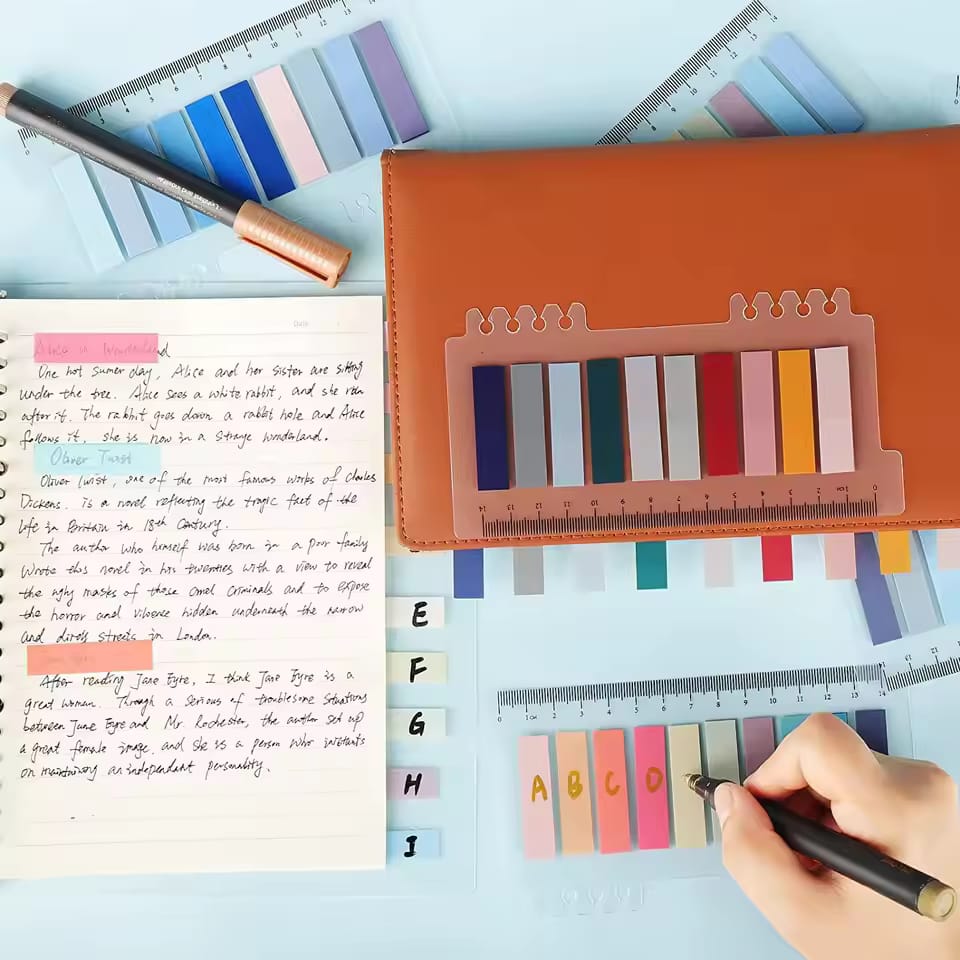 Date
Alice in Wonderland
One hot sumer day, Alice and her sister are sitting
under the tree. Alice sees a white rabbit, and she run
after it. The rabbit goes down a rabbit hole and Alice
follows it, she is now in a strange wonderland.
Oliver Twist
Oliver Twist, one of the most famous works of Charles
Dickens. is a novel reflecting the tragic fact of the
life in Britain in 18th Century.
The author who himself was born in a poor family
wrote this novel in his twenties with a view to reveal
the ugly masks of those cruel criminals and to expose
the horror and viloence hidden underneath the narrow
and dirty streets in London.
After reading Jane Eyre, I think Jane Eyre is a
great woman. Through a serious of troublesome situations
between Jane Eyre and Mr. Rochester, the author set up
a great female image. and she is a person who insistants
on maintaining an independant personality.
E
F
G
H
I
14 13 12 11 10 9 8 7 6 5 4 3 2 1cm 0
0 1cm 2 3 4 5 6 7 8 9 10 11 12 13 14
A B C D